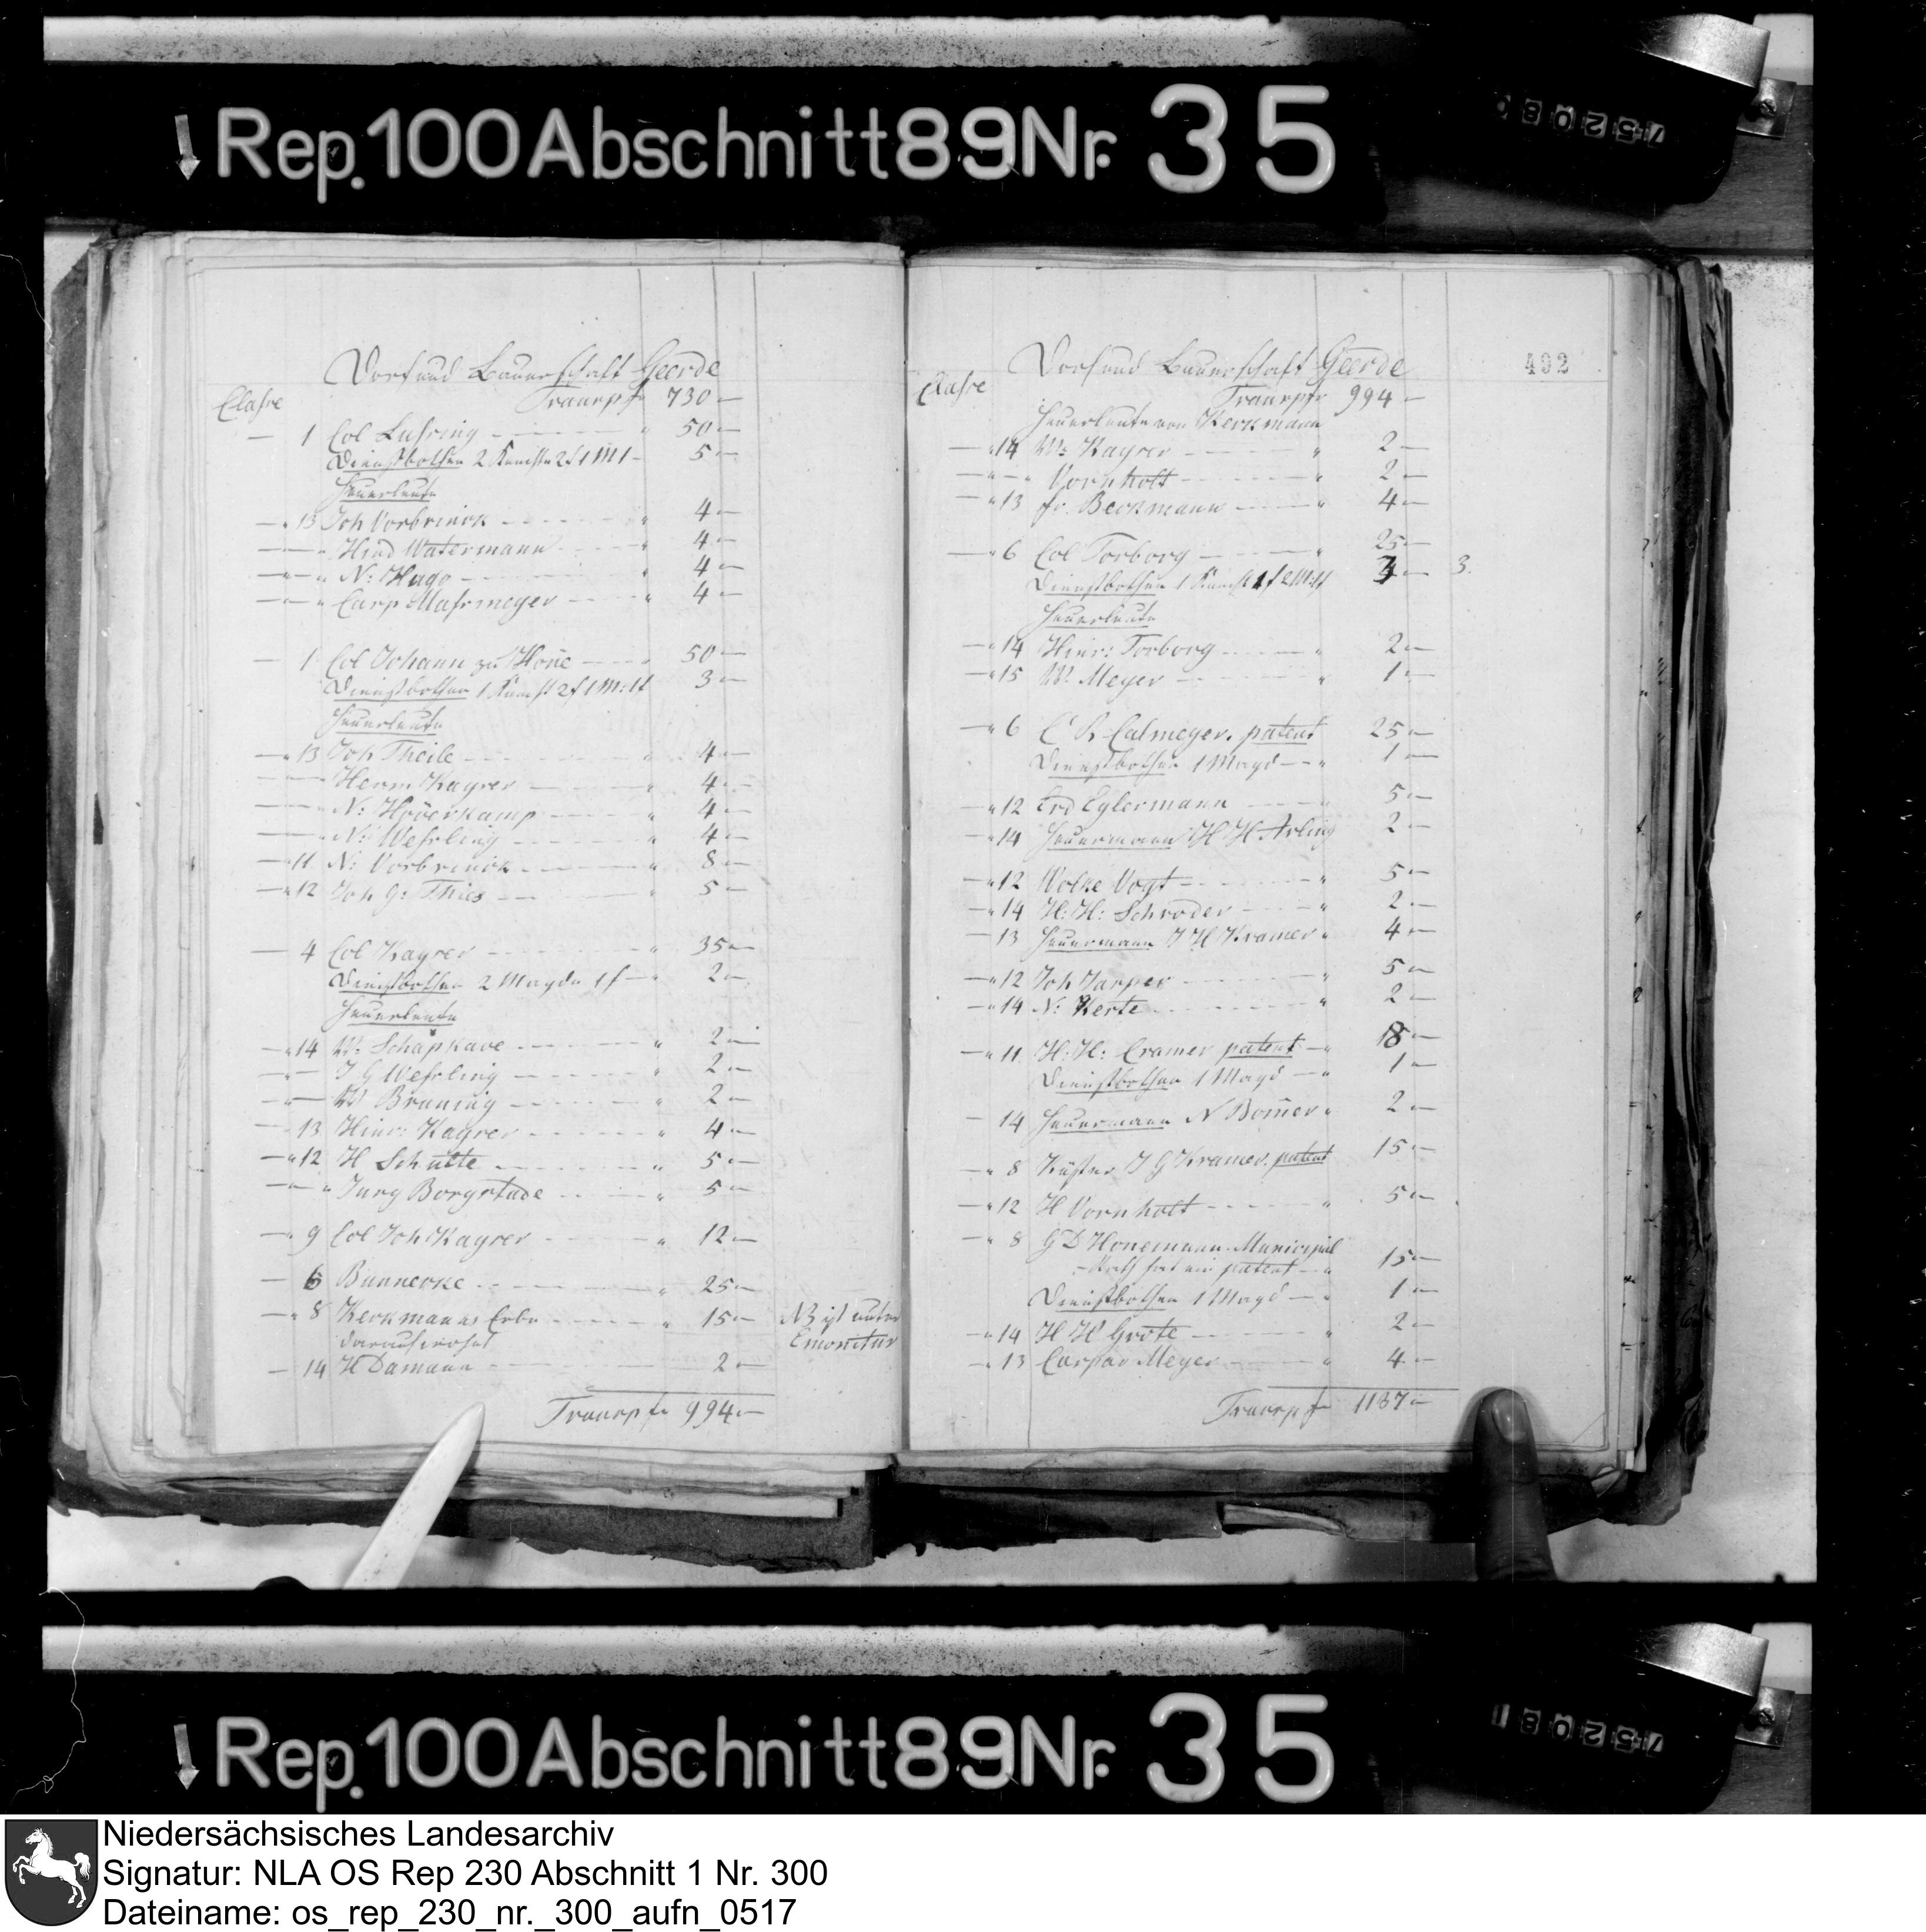 Rep. 100 Abschnitt 89 Nr. 35
Dorf und Bauerschaft Geerde
Classe
Transp fr 730 —
— 1 Col Luhring — " 50 —
Dienstbothen 2 Knechte 2 f 1 M 1 — 5 —
Heuerleute
— " 13 Joh Vorbrinck — " 4 —
— " Hind Watermann — " 4 —
— " N: Hugo — " 4 —
— " Casp Mahrmeyer — " 4 —
— 1 Col Johann zu Hone — " 50 —
Dienstbothen 1 Knecht 2 f 1 M: 1 f 3 —
Heuerleute
— " 13 Joh Theile — " 4 —
— Herm Kayser — " 4 —
— " N: — " 4 —
— " N: Wehrling — " 4 —
— " 11 N: Vorbrinck — " 8 —
— " 12 Joh G: Thies — " 5 —
— 4 Col Kayser — " 35 —
Dienstbothen 2 Magde 1 f — " 2 —
Heuerleute
— " 14 W: Schapkave — " 2 —
— " J G Wehrling — " 2 —
— " W Bruning — " 2 —
— 13 Hinr: Kayser — " 4 —
— " 12 H Schulte — " 5 —
— " Jurg Borgstede — " 5 —
— 9 Col Joh Kayser — " 12 —
— 6 Bunnecke — " 25 —
— " 8 Kerkmanns Erbe — " 15 — NB ist unter
darauf wohnt Emonitur
— 14 H Damann — 2 —
Transp fr 994 —
492
Dorf und Bauerschaft Geerde
Classe
Transp fr 994 —
Heuerleute von Kerkmann
— " 14 W: Kayser — " 2 —
— " — Vornholt — " 2 —
— " 13 fr. Beckmann — " 4 —
— " 6 Col Torborg — " 25 —
Dienstbothen 1 Knecht 1 f 3 — 3.
Heuerleute
— " 14 Hinr: Torborg — " 2 —
— " 15 W. Meyer — " 1 —
— " 6 Calmeyer. patent 25 —
Dienstbothen 1 Magd — " 1 —
— " 12 Erd Eylermann — " 5 —
— " 14 Heuermann H H Arling 2 —
— " 12 Wolke Vogt — " 5 —
— " 14 H: H: Schroder — " 2 —
— 13 Heuermann J H Kramer " 4 —
— " 12 Joh Jasper — " 5 —
— " 14 N: Kerte — " 2 —
— " 11 H: H: Cramer patent — " 8 —
Dienstbothen 1 Magd — " 1 —
— 14 Heuermann N Bomer " 2 —
— " 8 Küster J G Kramer. patent 15 —
— " 12 H Vornholt — " 5 —
— " 8 G D Honemann Municipal
Rath hat ein patent — " 15 —
Dienstbothen 1 Magd — " 1 —
— " 14 H W Grote — " 2 —
— " 13 Caspar Meyer — " 4 —
Transp fr 1137 —
Rep. 100 Abschnitt 89 Nr. 35
Niedersächsisches Landesarchiv
Signatur: NLA OS Rep 230 Abschnitt 1 Nr. 300
Dateiname: os_rep_230_nr._300_aufn_0517